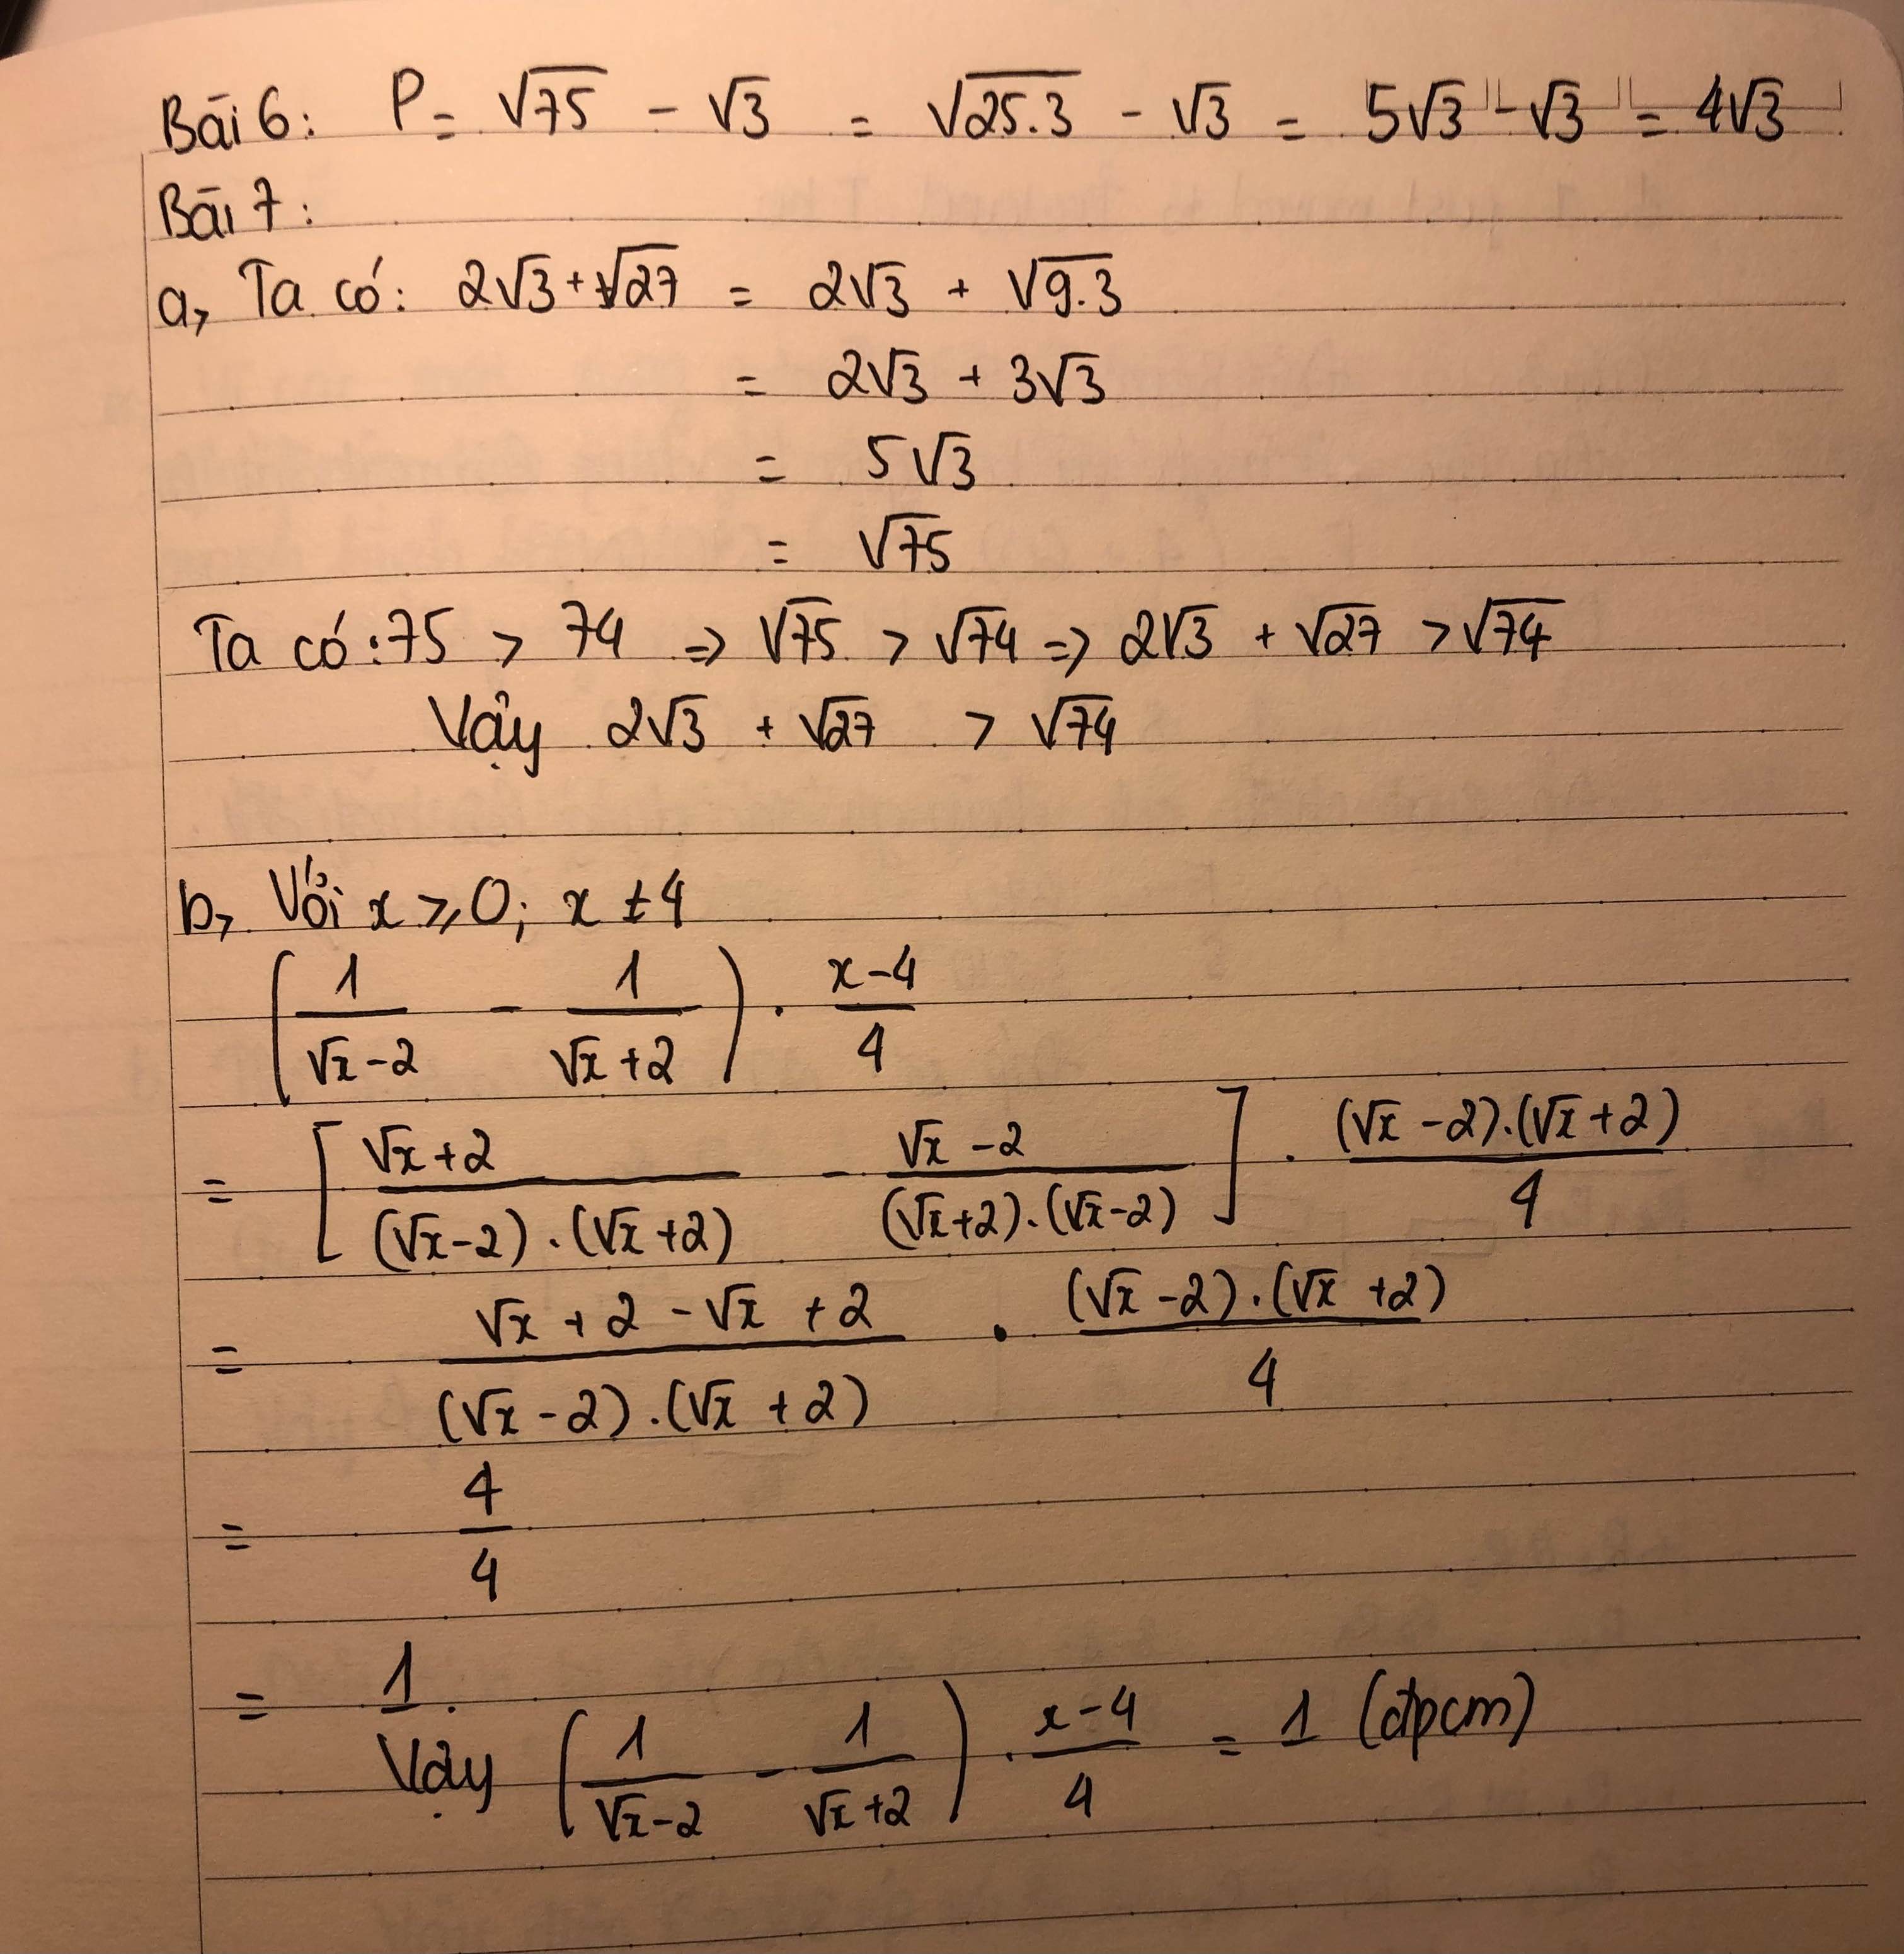 Bài 6: P = √75 - √3 = √25.3 - √3 = 5√3 - √3 = 4√3
Bài 7:
a, Ta có: 2√3 + √27 = 2√3 + √9.3
= 2√3 + 3√3
= 5√3
= √75
Ta có: 75 > 74 => √75 > √74 => 2√3 + √27 > √74
Vậy 2√3 + √27 > √74
b, Với x ≥ 0; x ≠ 4
(1/(√x-2) - 1/(√x+2)) . (x-4)/4
= [(√x+2)/((√x-2).(√x+2)) - (√x-2)/((√x+2).(√x-2))] . ((√x-2).(√x+2))/4
= (√x + 2 - √x + 2)/((√x-2).(√x+2)) . ((√x-2).(√x+2))/4
= 4/4
= 1.
Vậy (1/(√x-2) - 1/(√x+2)) . (x-4)/4 = 1 (đpcm)